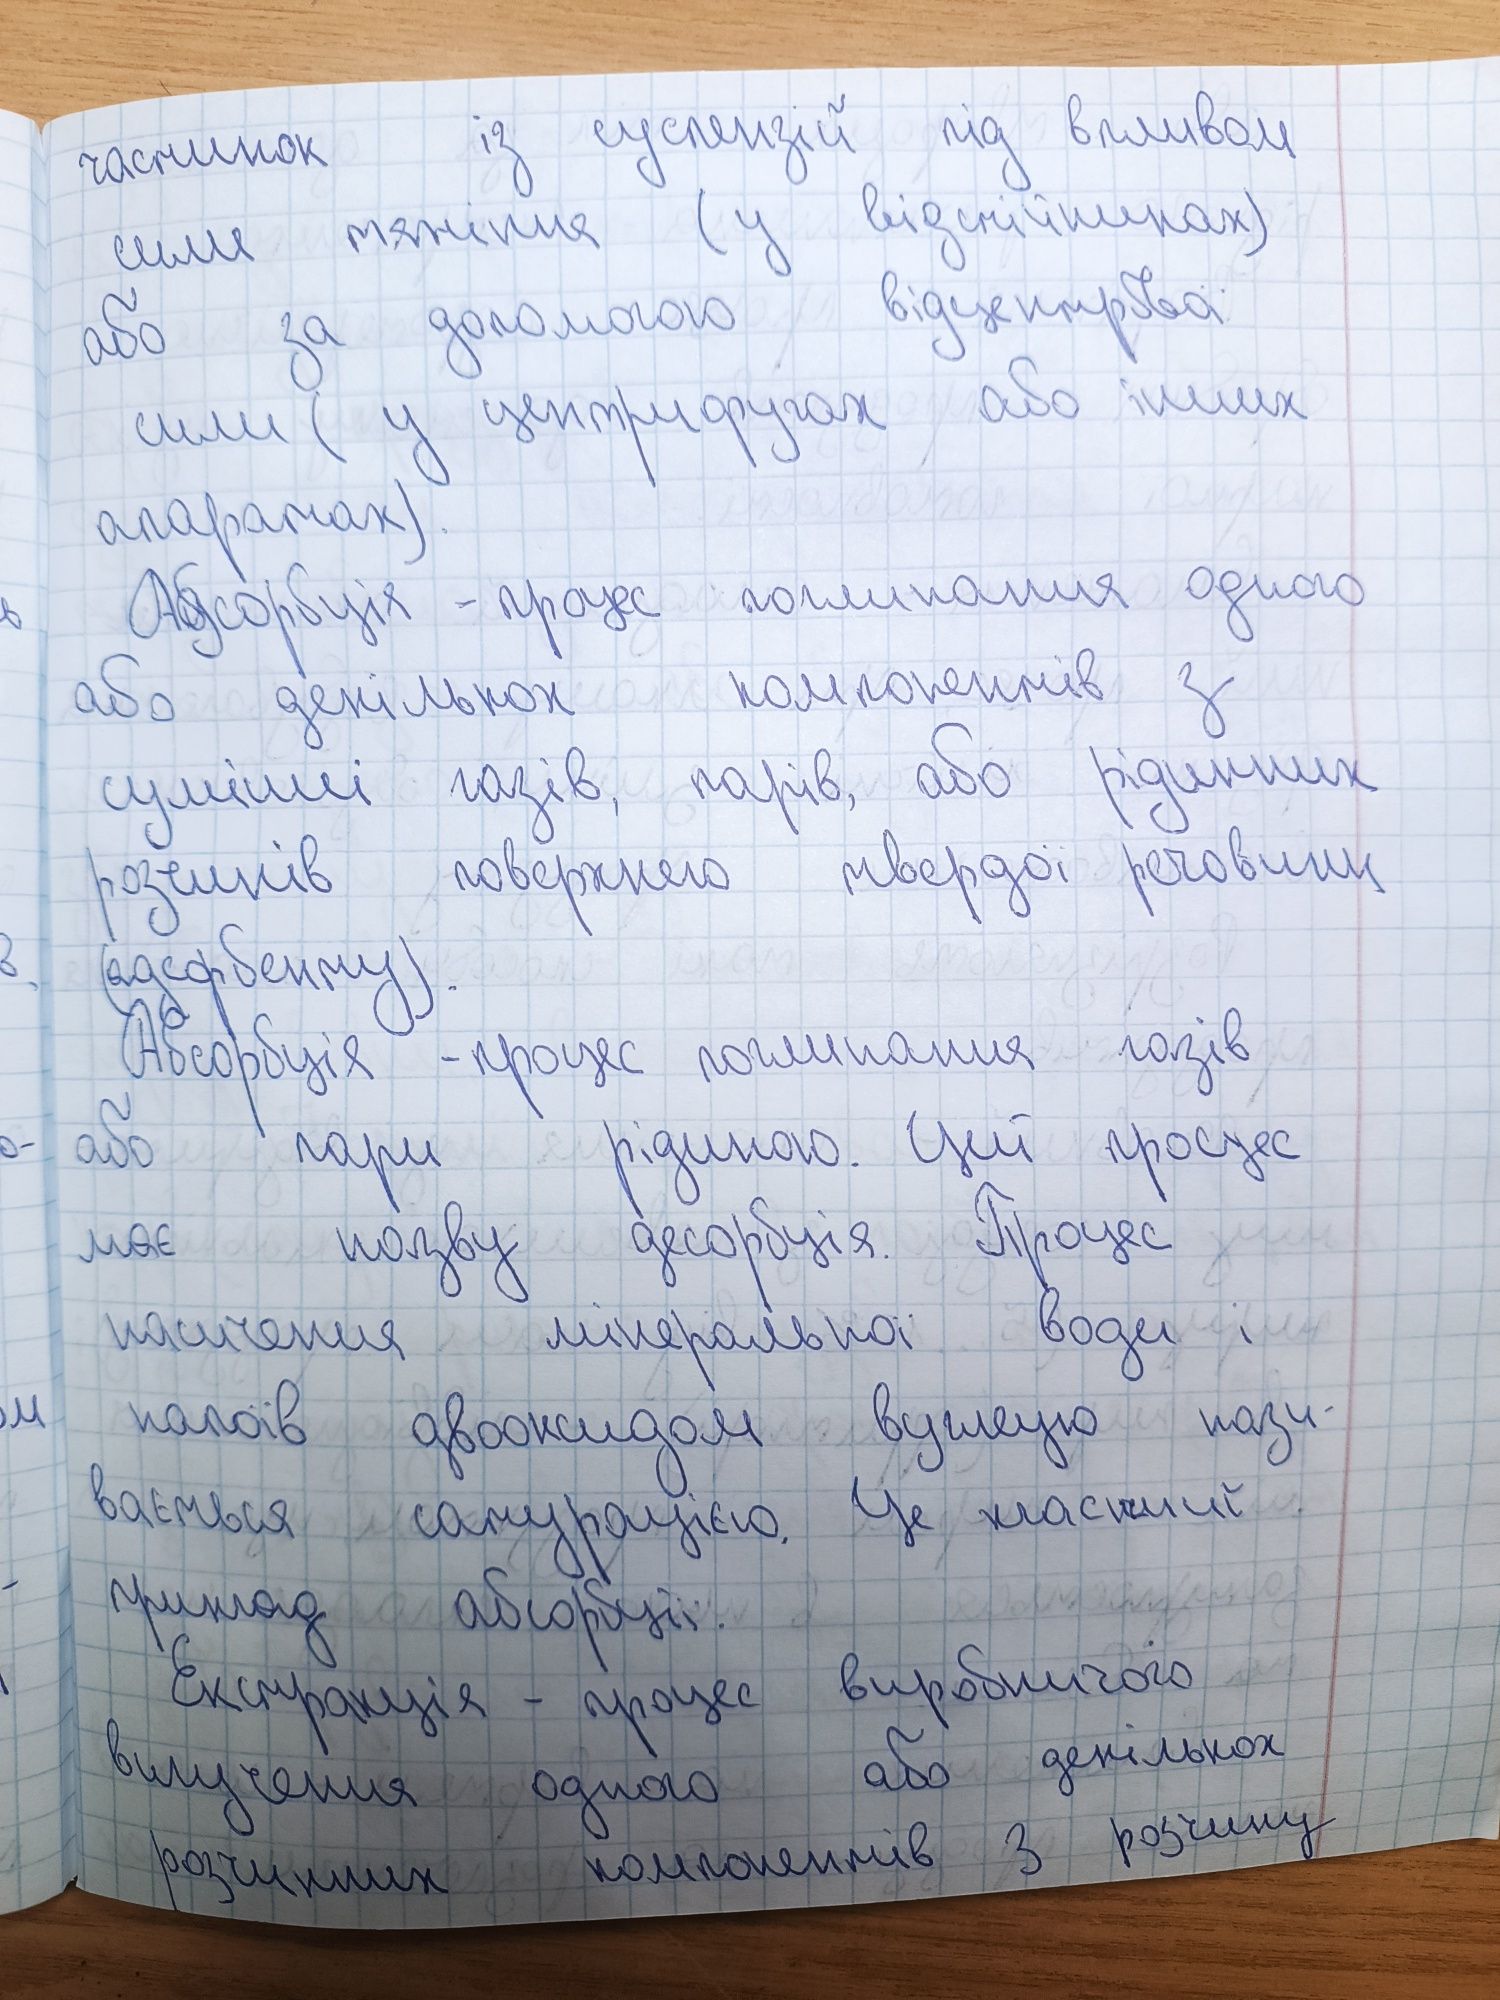 частинок із суспензій під впливом
сили тяжіння (у відстійниках)
або за допомогою відцентрвої
сили ( у центрифугах або інших
апаратах).
Адсорбція - процес поглинання одного
або декількох компонентів з
суміші газів, парів, або рідинних
розчинів поверхнею твердої речовини
(адсорбенту).
Абсорбція - процес поглинання газів
або пари рідиною. Цей просцес
має назву десорбція. Процес
насичення мінеральної води і
напоїв двооксидом вуглецю нази-
вається сатурацією. Це класичний
приклад абсорбції.
Екстракція - процес виробничого
вилучення одного або декількох
розчинних компонентів з розчину